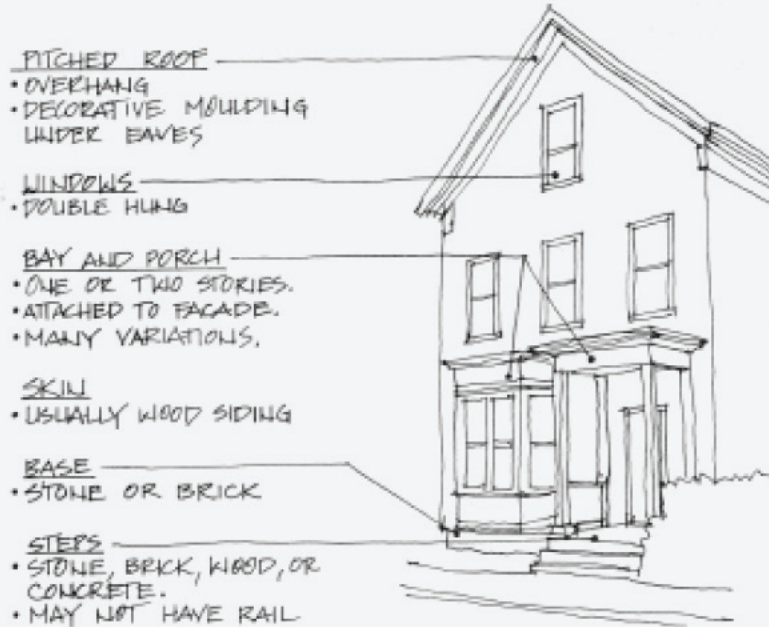 PITCHED ROOF
• OVERHANG
• DECORATIVE MOULDING
UNDER EAVES
WINDOWS
• DOUBLE HUNG
BAY AND PORCH
• ONE OR TWO STORIES.
• ATTACHED TO FACADE.
• MANY VARIATIONS.
SKIN
• USUALLY WOOD SIDING
BASE
• STONE OR BRICK
STEPS
• STONE, BRICK, WOOD, OR
CONCRETE.
• MAY NOT HAVE RAIL